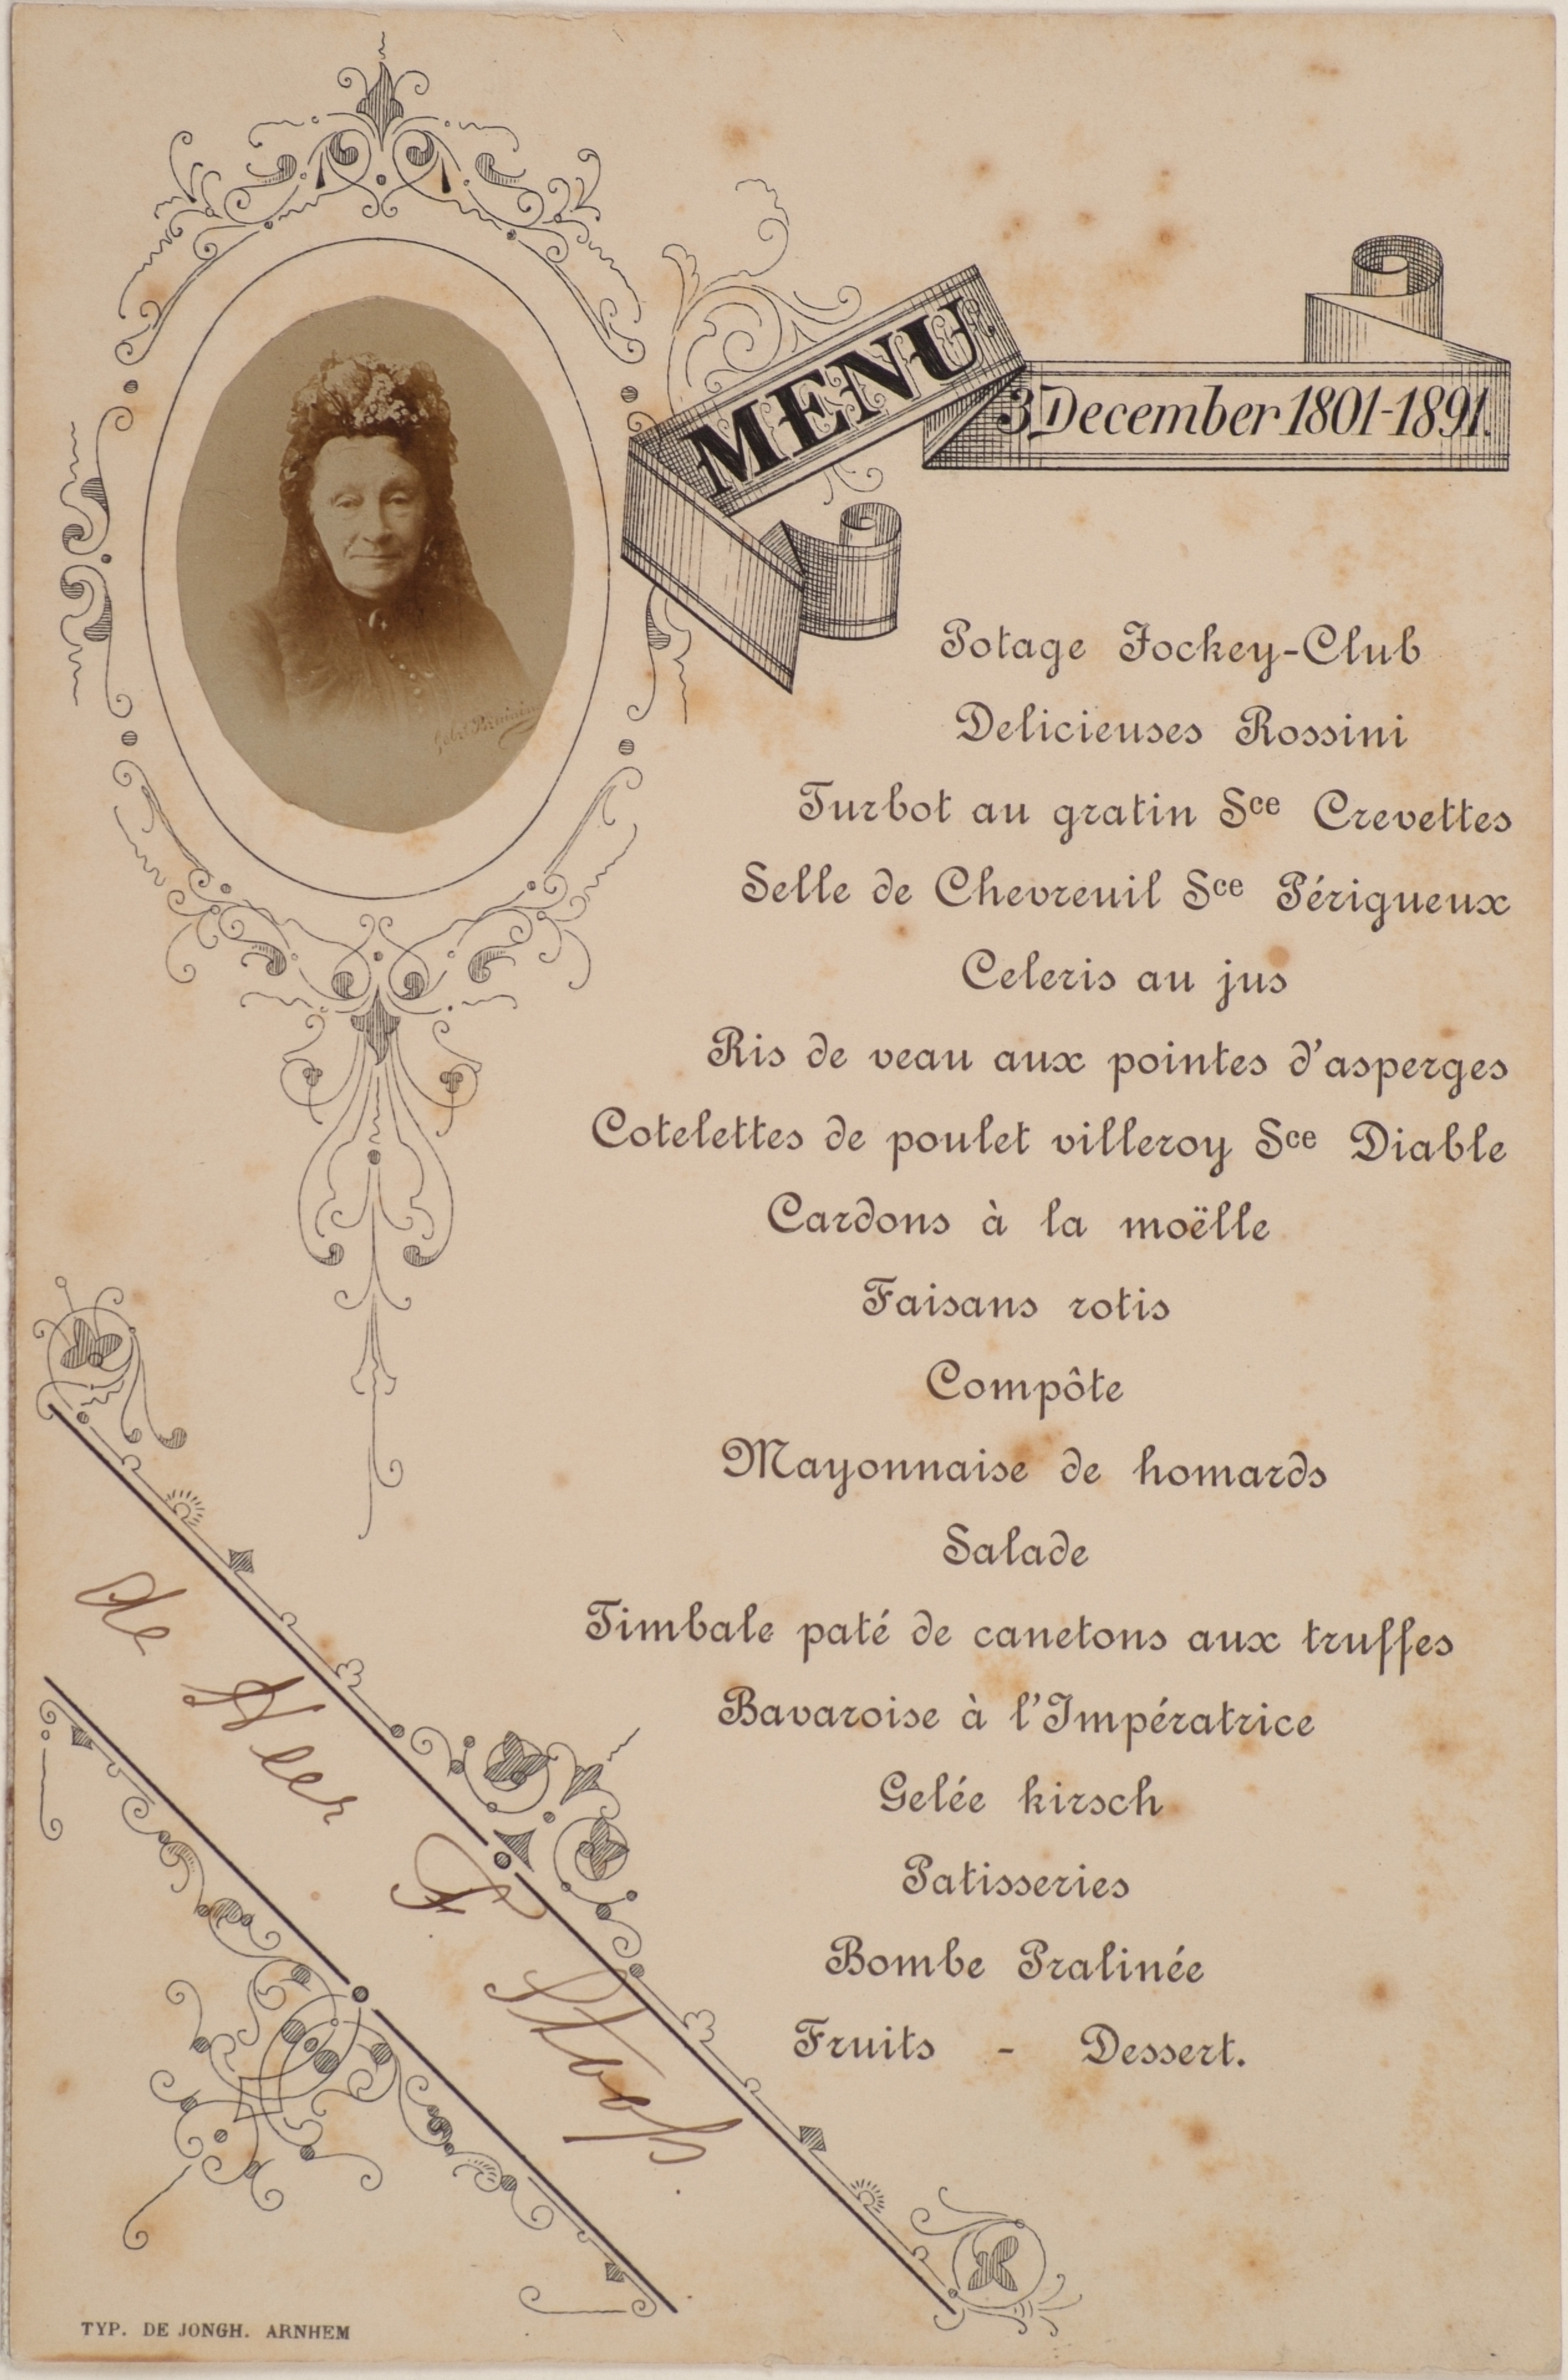 MENU.
3 December 1801-1891.
Potage Jockey-Club
Delicieuses Rossini
Turbot au gratin Sce Crevettes
Selle de Chevreuil Sce Périgueux
Celeris au jus
Ris de veau aux pointes d'asperges
Cotelettes de poulet villeroy Sce Diable
Cardons à la moëlle
Faisans rotis
Compôte
Mayonnaise de homards
Salade
Timbale paté de canetons aux truffes
Bavaroise à l'Impératrice
Gelée kirsch
Patisseries
Bombe Pralinée
Fruits - Dessert.
de Heer F. Stoop.
TYP. DE JONGH. ARNHEM